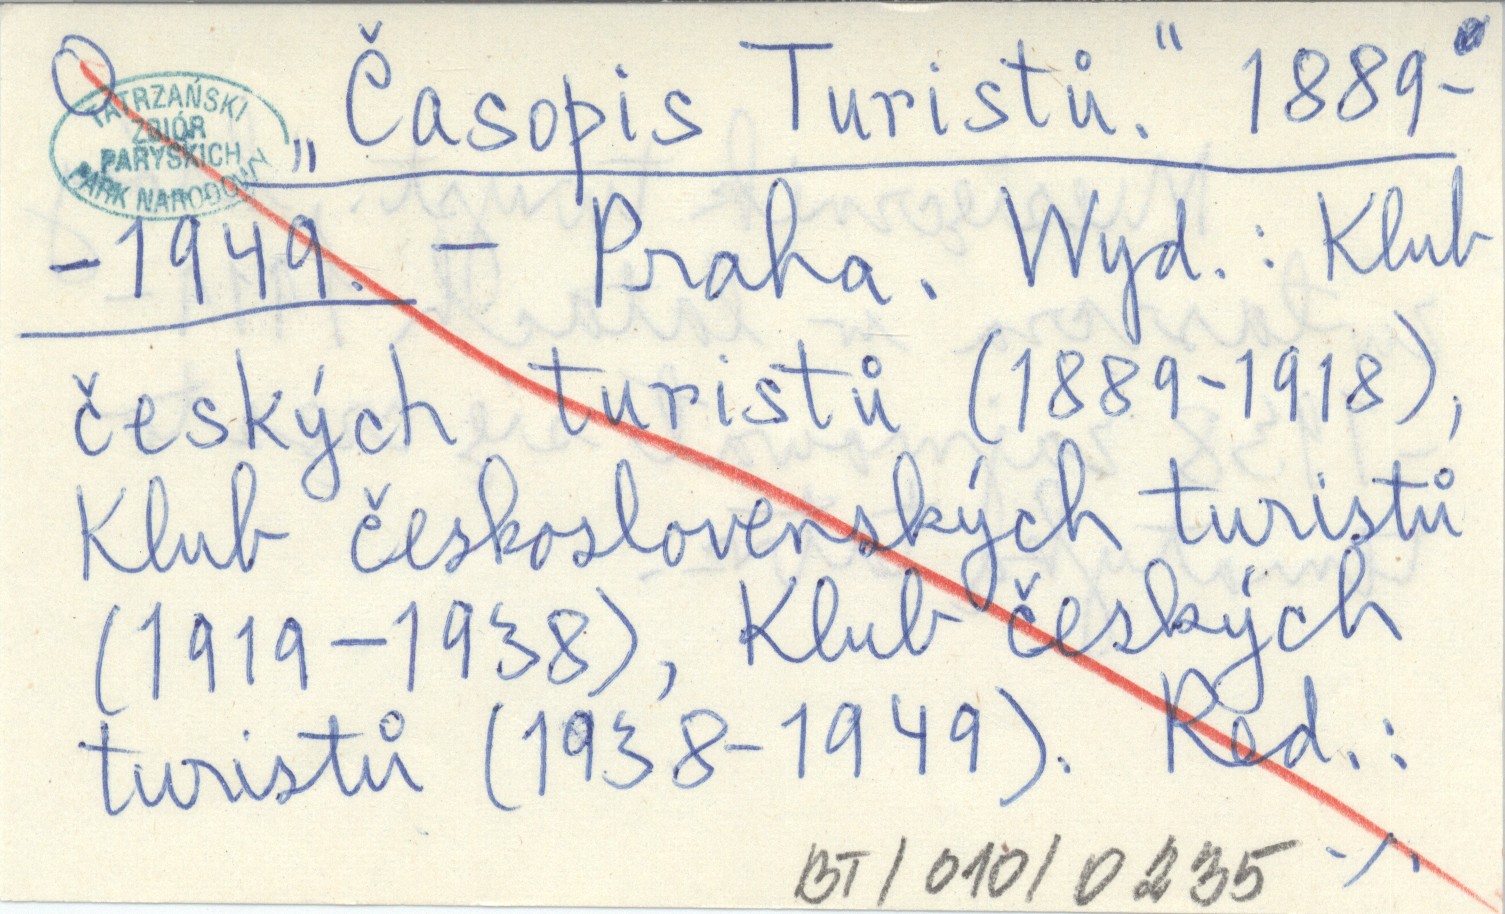 „Časopis Turistů." 1889-
-1949. - Praha. Wyd.: Klub
českých turistů (1889-1918),
Klub československých turistů
(1919-1938), Klub českých
turistů (1938-1949). Red.:
./.
BT/010/0235
TATRZAŃSKI
ZBIÓR
PARYSKICH
PARK NARODOWY